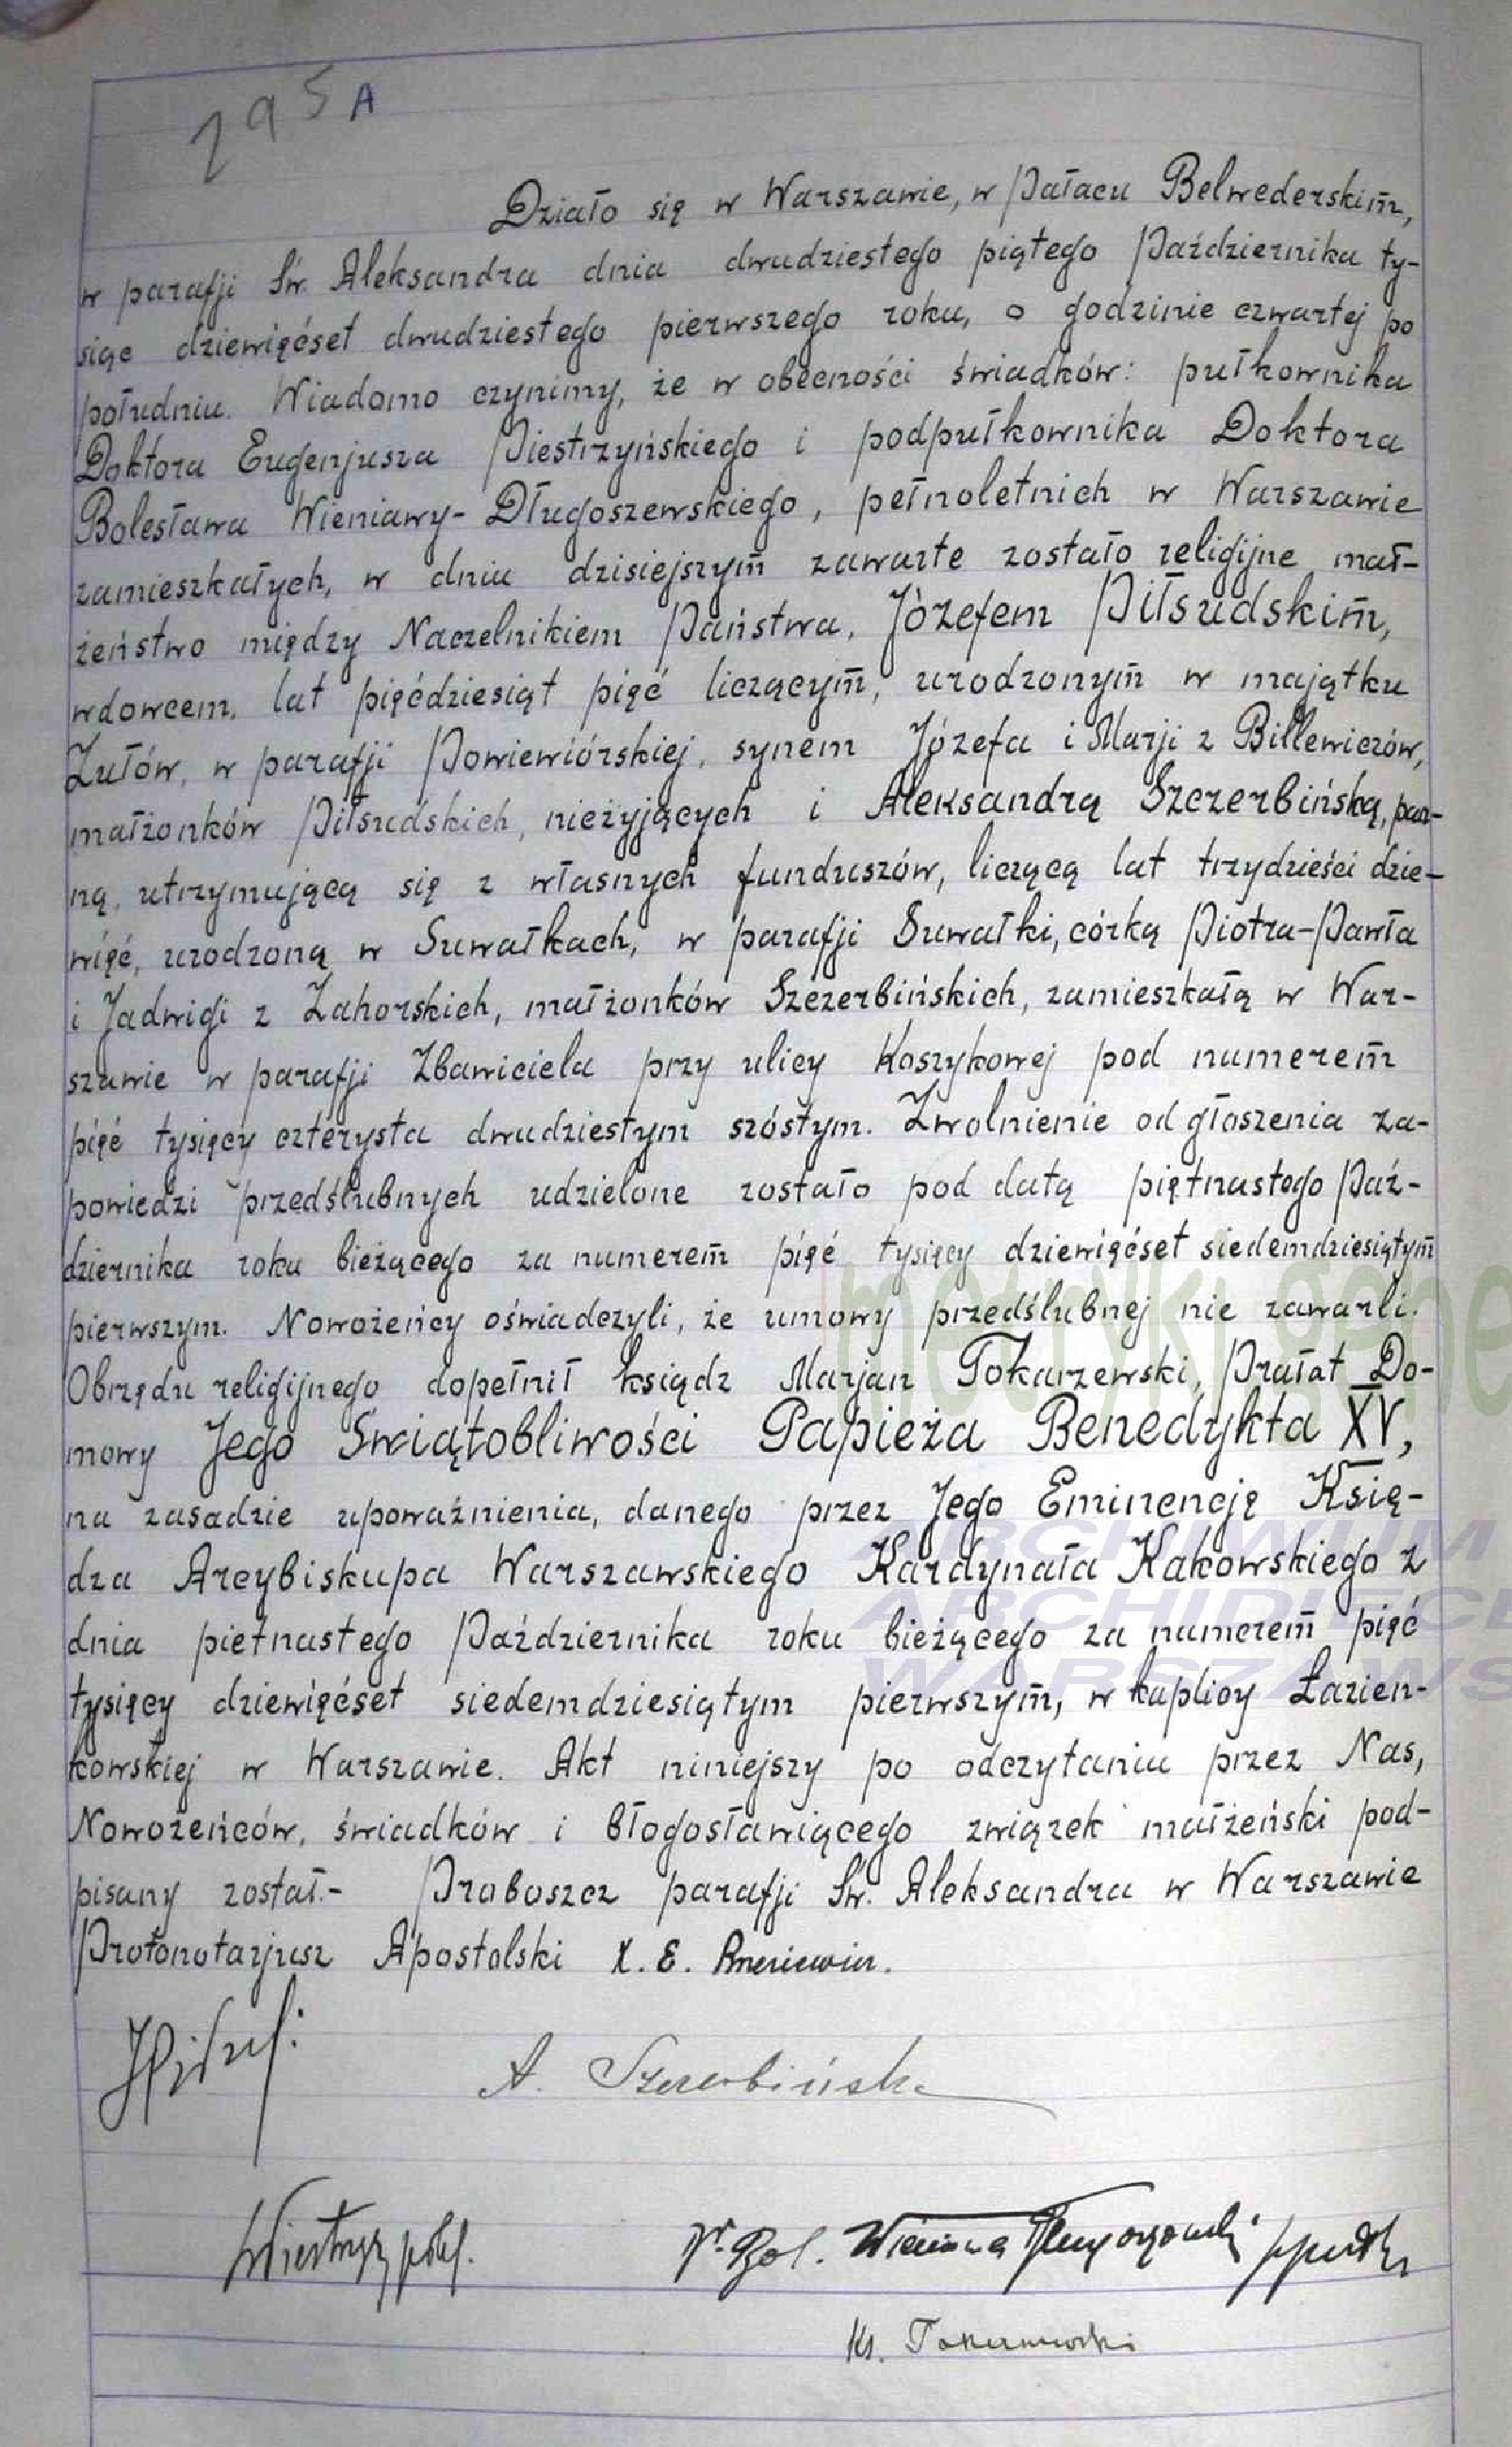 295 A
Działo się w Warszawie, w Pałacu Belwederskim,
w parafji Św. Aleksandra dnia dwudziestego piątego Października ty-
siąc dziewięćset dwudziestego pierwszego roku, o godzinie czwartej po
południu. Wiadomo czynimy, że w obecności świadków: pułkownika
Doktora Eugenjusza Piestrzyńskiego i podpułkownika Doktora
Bolesława Wieniawy-Długoszewskiego, pełnoletnich w Warszawie
zamieszkałych, w dniu dzisiejszym zawarte zostało religijne mał-
żeństwo między Naczelnikiem Państwa, Józefem Piłsudskim,
wdowcem, lat pięćdziesiąt pięć liczącym, urodzonym w majątku
Zułów, w parafji Powiewiórskiej, synem Józefa i Marji z Billewiczów,
małżonków Piłsudskich, nieżyjących i Aleksandrą Szczerbińską, pan-
ną, utrzymującą się z własnych funduszów, liczącą lat trzydzieści dzie-
więć, urodzoną w Suwałkach, w parafji Suwałki, córką Piotra-Pawła
i Jadwigi z Zahorskich, małżonków Szczerbińskich, zamieszkałą w War-
szawie w parafji Zbawiciela przy ulicy Koszykowej pod numerem
pięć tysięcy czterysta dwudziestym szóstym. Zwolnienie od głoszenia za-
powiedzi przedślubnych udzielone zostało pod datą piętnastego Paź-
dziernika roku bieżącego za numerem pięć tysięcy dziewięćset siedemdziesiątym
pierwszym. Nowożeńcy oświadczyli, że umowy przedślubnej nie zawarli.
Obrzędu religijnego dopełnił ksiądz Marjan Tokarzewski, Prałat Do-
mowy Jego Świątobliwości Papieża Benedykta XV,
na zasadzie upoważnienia, danego przez Jego Eminencję Księ-
dza Arcybiskupa Warszawskiego Kardynała Kakowskiego z
dnia pietnastego Października roku bieżącego za numerem pięć
tysięcy dziewięćset siedemdziesiątym pierwszym, w kaplicy Łazien-
kowskiej w Warszawie. Akt niniejszy po odczytaniu przez Nas,
Nowożeńców, świadków i błogosławiącego związek małżeński pod-
pisany został.- Proboszcz parafji Św. Aleksandra w Warszawie
Protonotarjusz Apostolski X. E.
A. Szczerbińska
Dr. Bol. Wieniawa Długoszowski
Ks. Tokarzewski
metryki.gene
ARCHIWUM
ARCHIDIECE
WARSZAWS